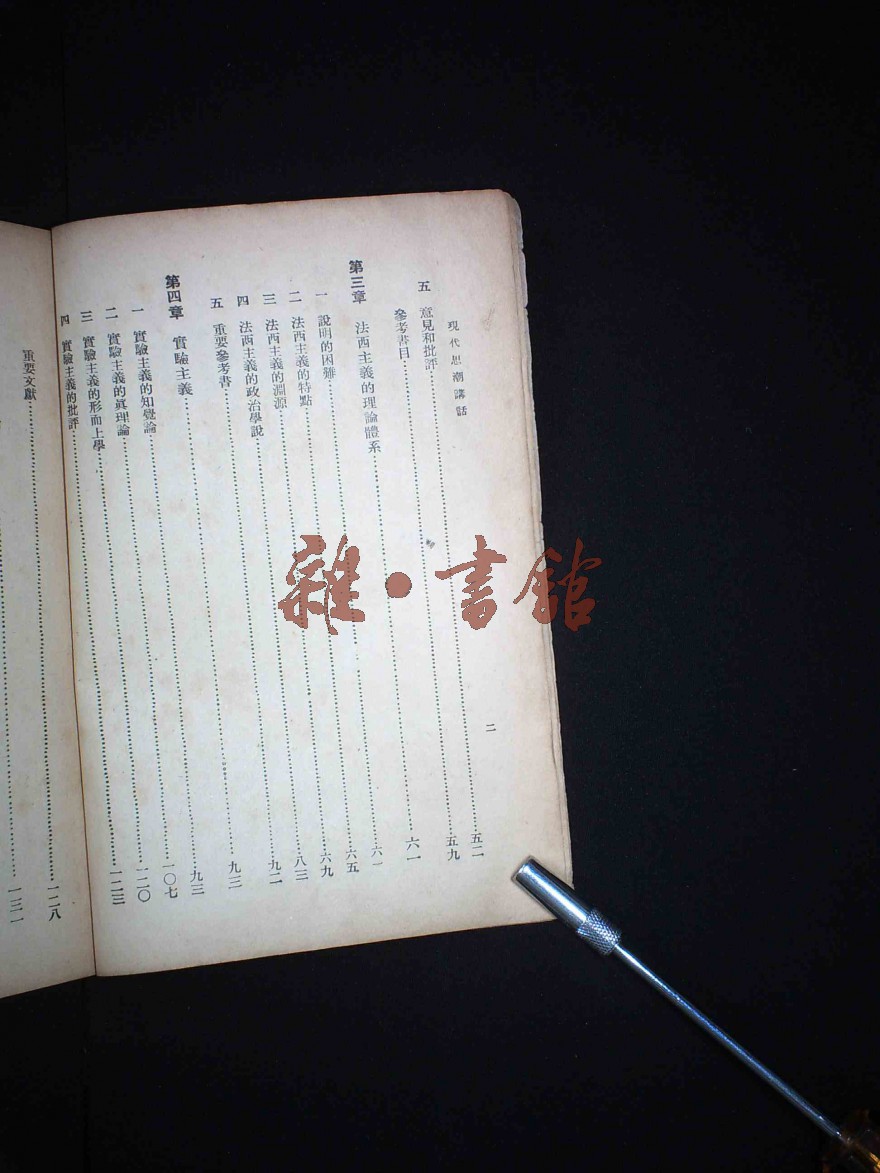 現代思潮講話
二
五 意見和批評……五二
參考書目……五九
第三章 法西主義的理論體系……六一
一 說明的困難……六一
二 法西主義的特點……六五
三 法西主義的淵源……六九
四 法西主義的政治學說……八三
五 重要參考書……九二
第四章 實驗主義……九三
一 實驗主義的知覺論……九三
二 實驗主義的眞理論……一〇七
三 實驗主義的形而上學……一二〇
四 實驗主義的批評……一二三
重要文獻……一二八
一三一
雜·書館